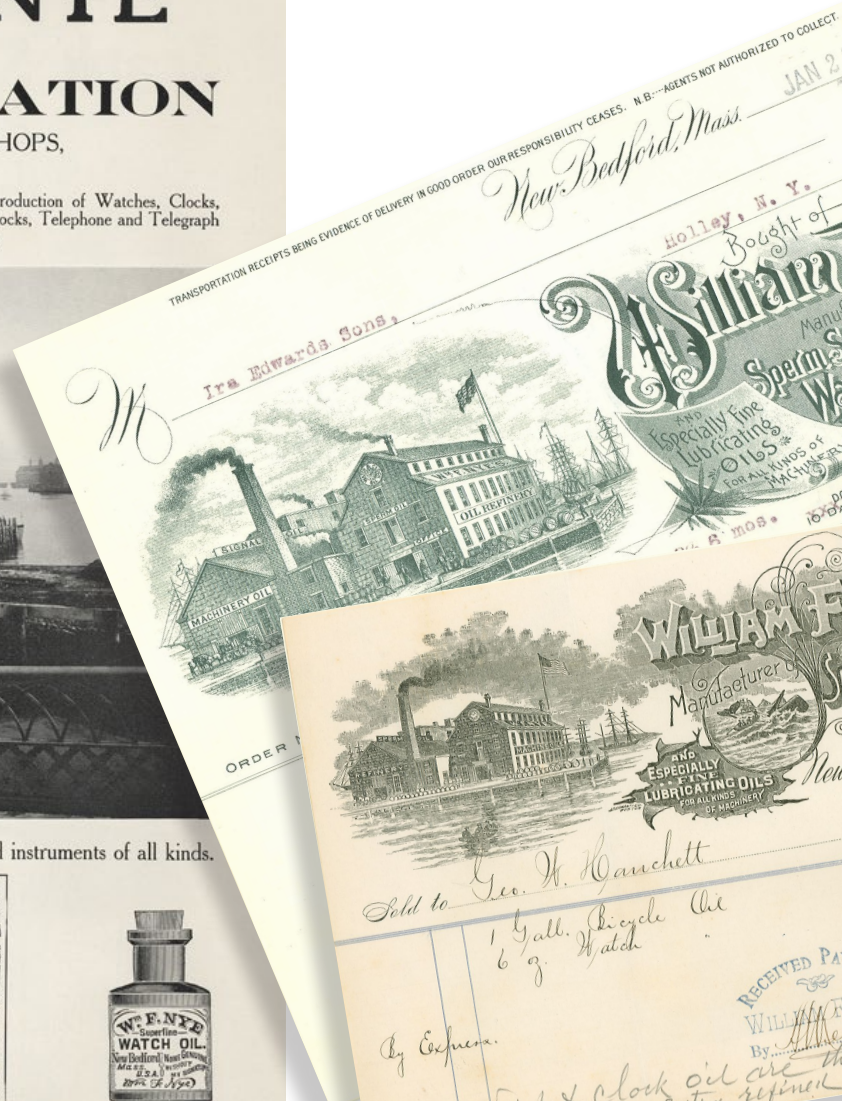 NYE
ATION
HOPS,
roduction of Watches, Clocks,
ocks, Telephone and Telegraph
l instruments of all kinds.
Wm. F. NYE
Superfine
WATCH OIL.
New Bedford
Mass.
U.S.A.
None Genuine
without
my signature
Wm F Nye
TRANSPORTATION RECEIPTS BEING EVIDENCE OF DELIVERY IN GOOD ORDER OUR RESPONSIBILITY CEASES. N.B.--AGENTS NOT AUTHORIZED TO COLLECT.
New Bedford, Mass. JAN 2
Holley, N. Y.
M Ira Edwards Sons,
Bought of
William
Manuf
Sperm, S
Wa
AND
Especially Fine
Lubricating
OILS
FOR ALL KINDS OF
MACHINERY
SIGNAL
MACHINERY OIL
SPERM OIL
W.F. NYE'S
OIL REFINERY
6 mos.
10 D
ORDER N
WILLIAM F
Manufacturer of
S
AND
ESPECIALLY
FINE
LUBRICATING OILS
FOR ALL KINDS
OF MACHINERY
New
SPERM
REFINED
MACHINE OIL
Sold to Geo. W. Hanchett
1 Gall. Bicycle Oil
6 oz. Watch "
By Express.
RECEIVED PA
WILLIAM F
By
& Clock oil are th
refined